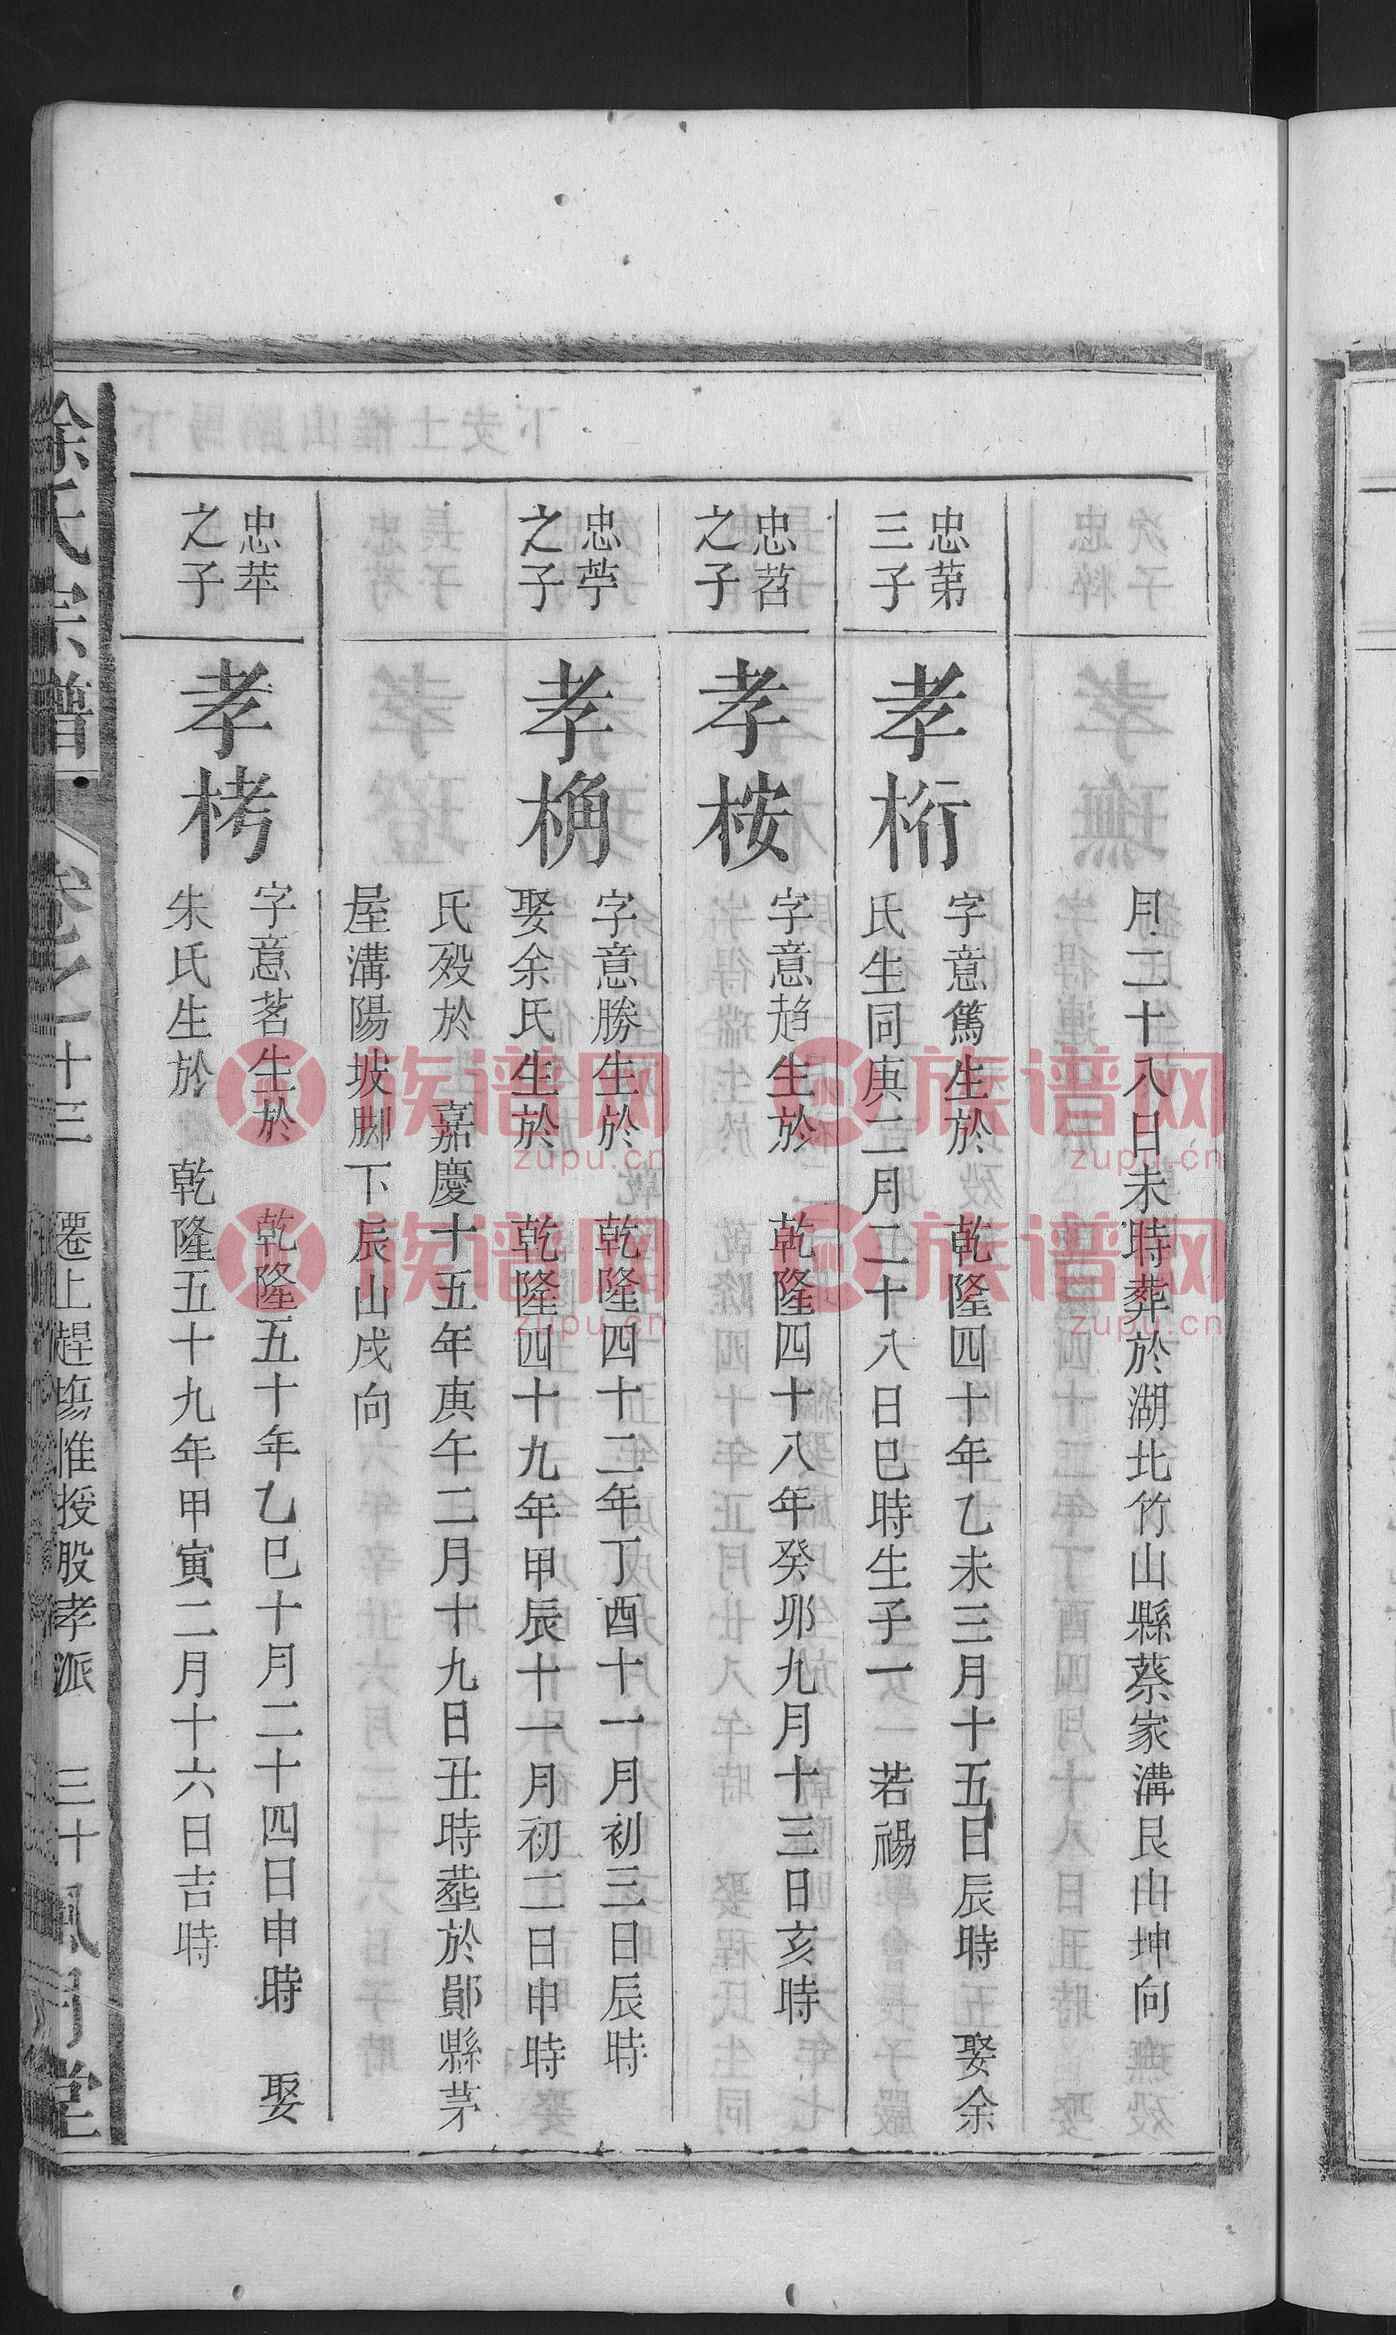 月二十八日未時葬於湖北竹山縣蔡家溝艮山坤向
忠第
三子
孝桁
字意篤生於　乾隆四十年乙未三月十五日辰時　娶余
氏生同庚二月二十八日巳時生子一　若禓
忠萏
之子
孝桉
字意趋生於　乾隆四十八年癸卯九月十三日亥時
忠葶
之子
孝桷
字意勝生於　乾隆四十二年丁酉十一月初三日辰時
娶余氏生於　乾隆四十九年甲辰十一月初二日申時
氏殁於　嘉慶十五年庚午二月十九日丑時塟於鄖縣茅
垕溝陽坡脚下辰山戌向
忠苹
之子
孝栲
字意茗生於　乾隆五十年乙巳十月二十四日申時　娶
朱氏生於　乾隆五十九年甲寅二月十六日吉時
徐氏宗譜
卷之十三
遷上趕塲惟授股孝派
三十
族谱网
zupu.cn
族谱网
zupu.cn
族谱网
zupu.cn
族谱网
zupu.cn